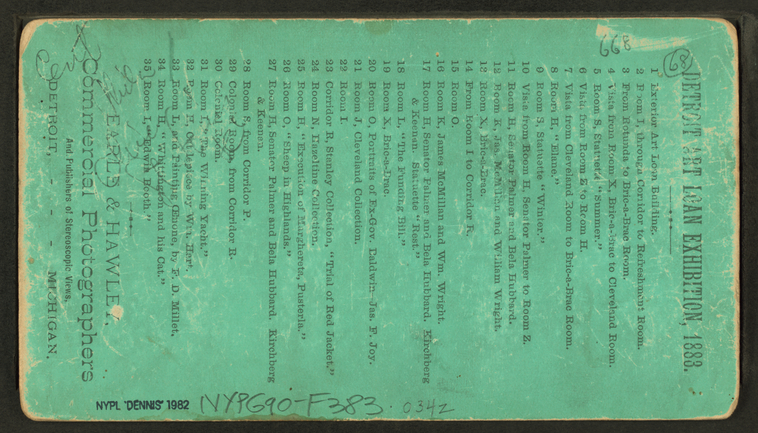 668
68
DETROIT ART LOAN EXHIBITION, 1883.
1 Exterior Art Loan Building.
2 Room I, through Corridor to Refreshment Room.
3 From Rotunda to Bric-a-Brac Room.
4 Vista from Room X, Bric-a-Brac to Cleveland Room.
5 Room S, Statuette "Summer."
6 Vista from Room Z to Room H.
7 Vista from Cleveland Room to Bric-a-Brac Room.
8 Room H, "Elane."
9 Room S, Statuette "Winter."
10 Vista from Room H, Senator Palmer to Room Z.
11 Room H, Senator Palmer and Bela Hubbard.
12 Room K, Jas. McMillan and William Wright.
13 Room X, Bric-a-Brac.
14 From Room I to Corridor R.
15 Room O.
16 Room K, James McMillan and Wm. Wright.
17 Room H, Senator Palmer and Bela Hubbard. Kirchberg
& Keenan. Statuette "Rest."
18 Room L, "The Funding Bill."
19 Room X, Bric-a-Brac.
20 Room O, Portraits of Ex-Gov. Baldwin, Jas. F. Joy.
21 Room J, Cleveland Collection.
22 Room I.
23 Corridor R, Stanley Collection, "Trial of Red Jacket."
24 Room N, Haseltine Collection.
25 Room H, "Execution of Marghereta, Pusterla."
26 Room O, "Sheep in Highlands."
27 Room H, Senator Palmer and Bela Hubbard. Kirchberg
& Keenan.
28 Room S, from Corridor P.
29 Colonial Room, from Corridor R.
30 Colonial Room.
31 Room L, "The Winning Yacht."
32 Room H,
33 Room L, and Painting OEnone, by F. D. Millet.
34 Room H, "Whittington and his Cat."
35 Room L, "Edwin Booth."
EARLE & HAWLEY,
Commercial Photographers
And Publishers of Stereoscopic Views,
DETROIT, - - - MICHIGAN.
NYPL "DENNIS" 1982
NYPG90-F383. 034z